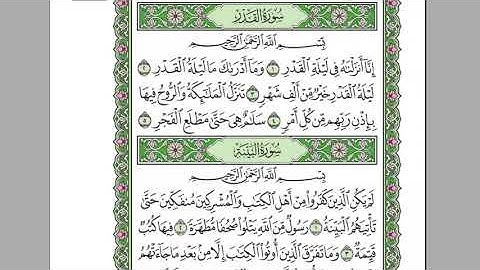 سُورَةُ القَدْرِ
بِسْمِ اللَّهِ الرَّحْمَٰنِ الرَّحِيمِ
إِنَّا أَنزَلْنَٰهُ فِى لَيْلَةِ ٱلْقَدْرِ ۝١ وَمَآ أَدْرَىٰكَ مَا لَيْلَةُ ٱلْقَدْرِ ۝٢
لَيْلَةُ ٱلْقَدْرِ خَيْرٌ مِّنْ أَلْفِ شَهْرٍ ۝٣ تَنَزَّلُ ٱلْمَلَٰٓئِكَةُ وَٱلرُّوحُ فِيهَا
بِإِذْنِ رَبِّهِم مِّن كُلِّ أَمْرٍ ۝٤ سَلَٰمٌ هِىَ حَتَّىٰ مَطْلَعِ ٱلْفَجْرِ ۝٥
سُورَةُ البَيِّنَةِ
بِسْمِ اللَّهِ الرَّحْمَٰنِ الرَّحِيمِ
لَمْ يَكُنِ ٱلَّذِينَ كَفَرُوا۟ مِنْ أَهْلِ ٱلْكِتَٰبِ وَٱلْمُشْرِكِينَ مُنفَكِّينَ حَتَّىٰ
تَأْتِيَهُمُ ٱلْبَيِّنَةُ ۝١ رَسُولٌ مِّنَ ٱللَّهِ يَتْلُوا۟ صُحُفًا مُّطَهَّرَةً ۝٢ فِيهَا كُتُبٌ
قَيِّمَةٌ ۝٣ وَمَا تَفَرَّقَ ٱلَّذِينَ أُوتُوا۟ ٱلْكِتَٰبَ إِلَّا مِنۢ بَعْدِ مَا جَآءَتْهُمُ